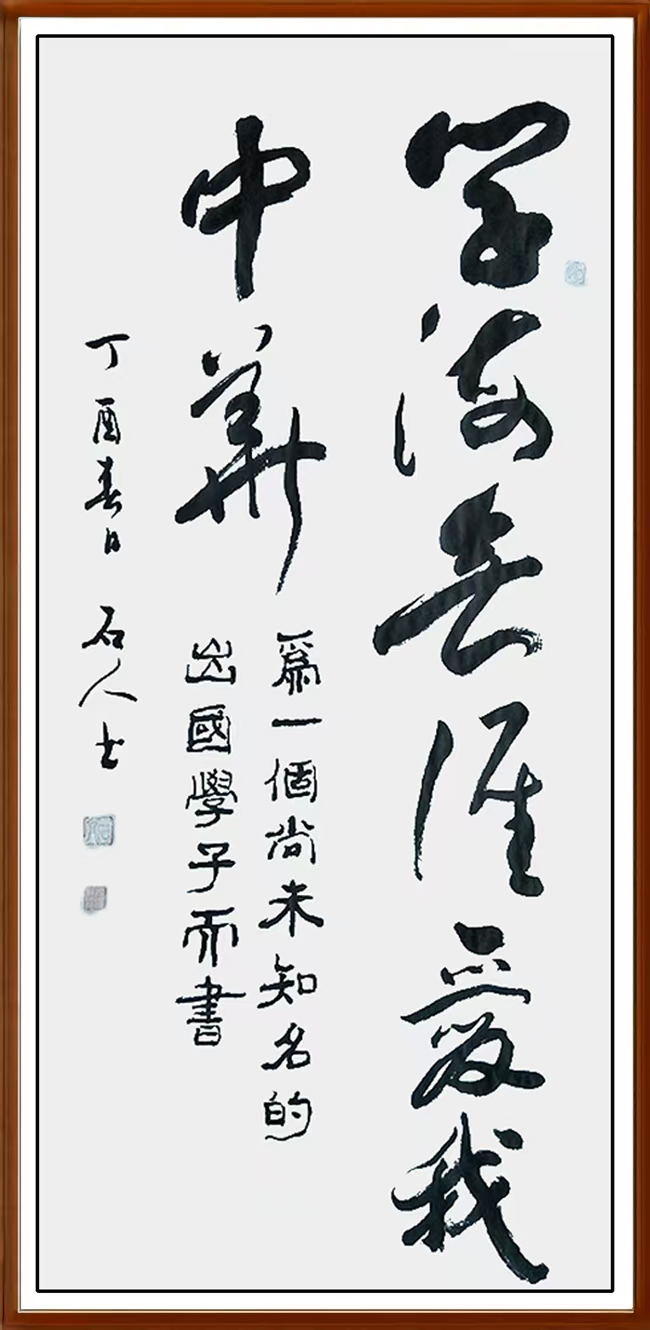 学海无涯爱我
中華
爲一個尚未知名的
出國學子而書
丁酉春日 石人士